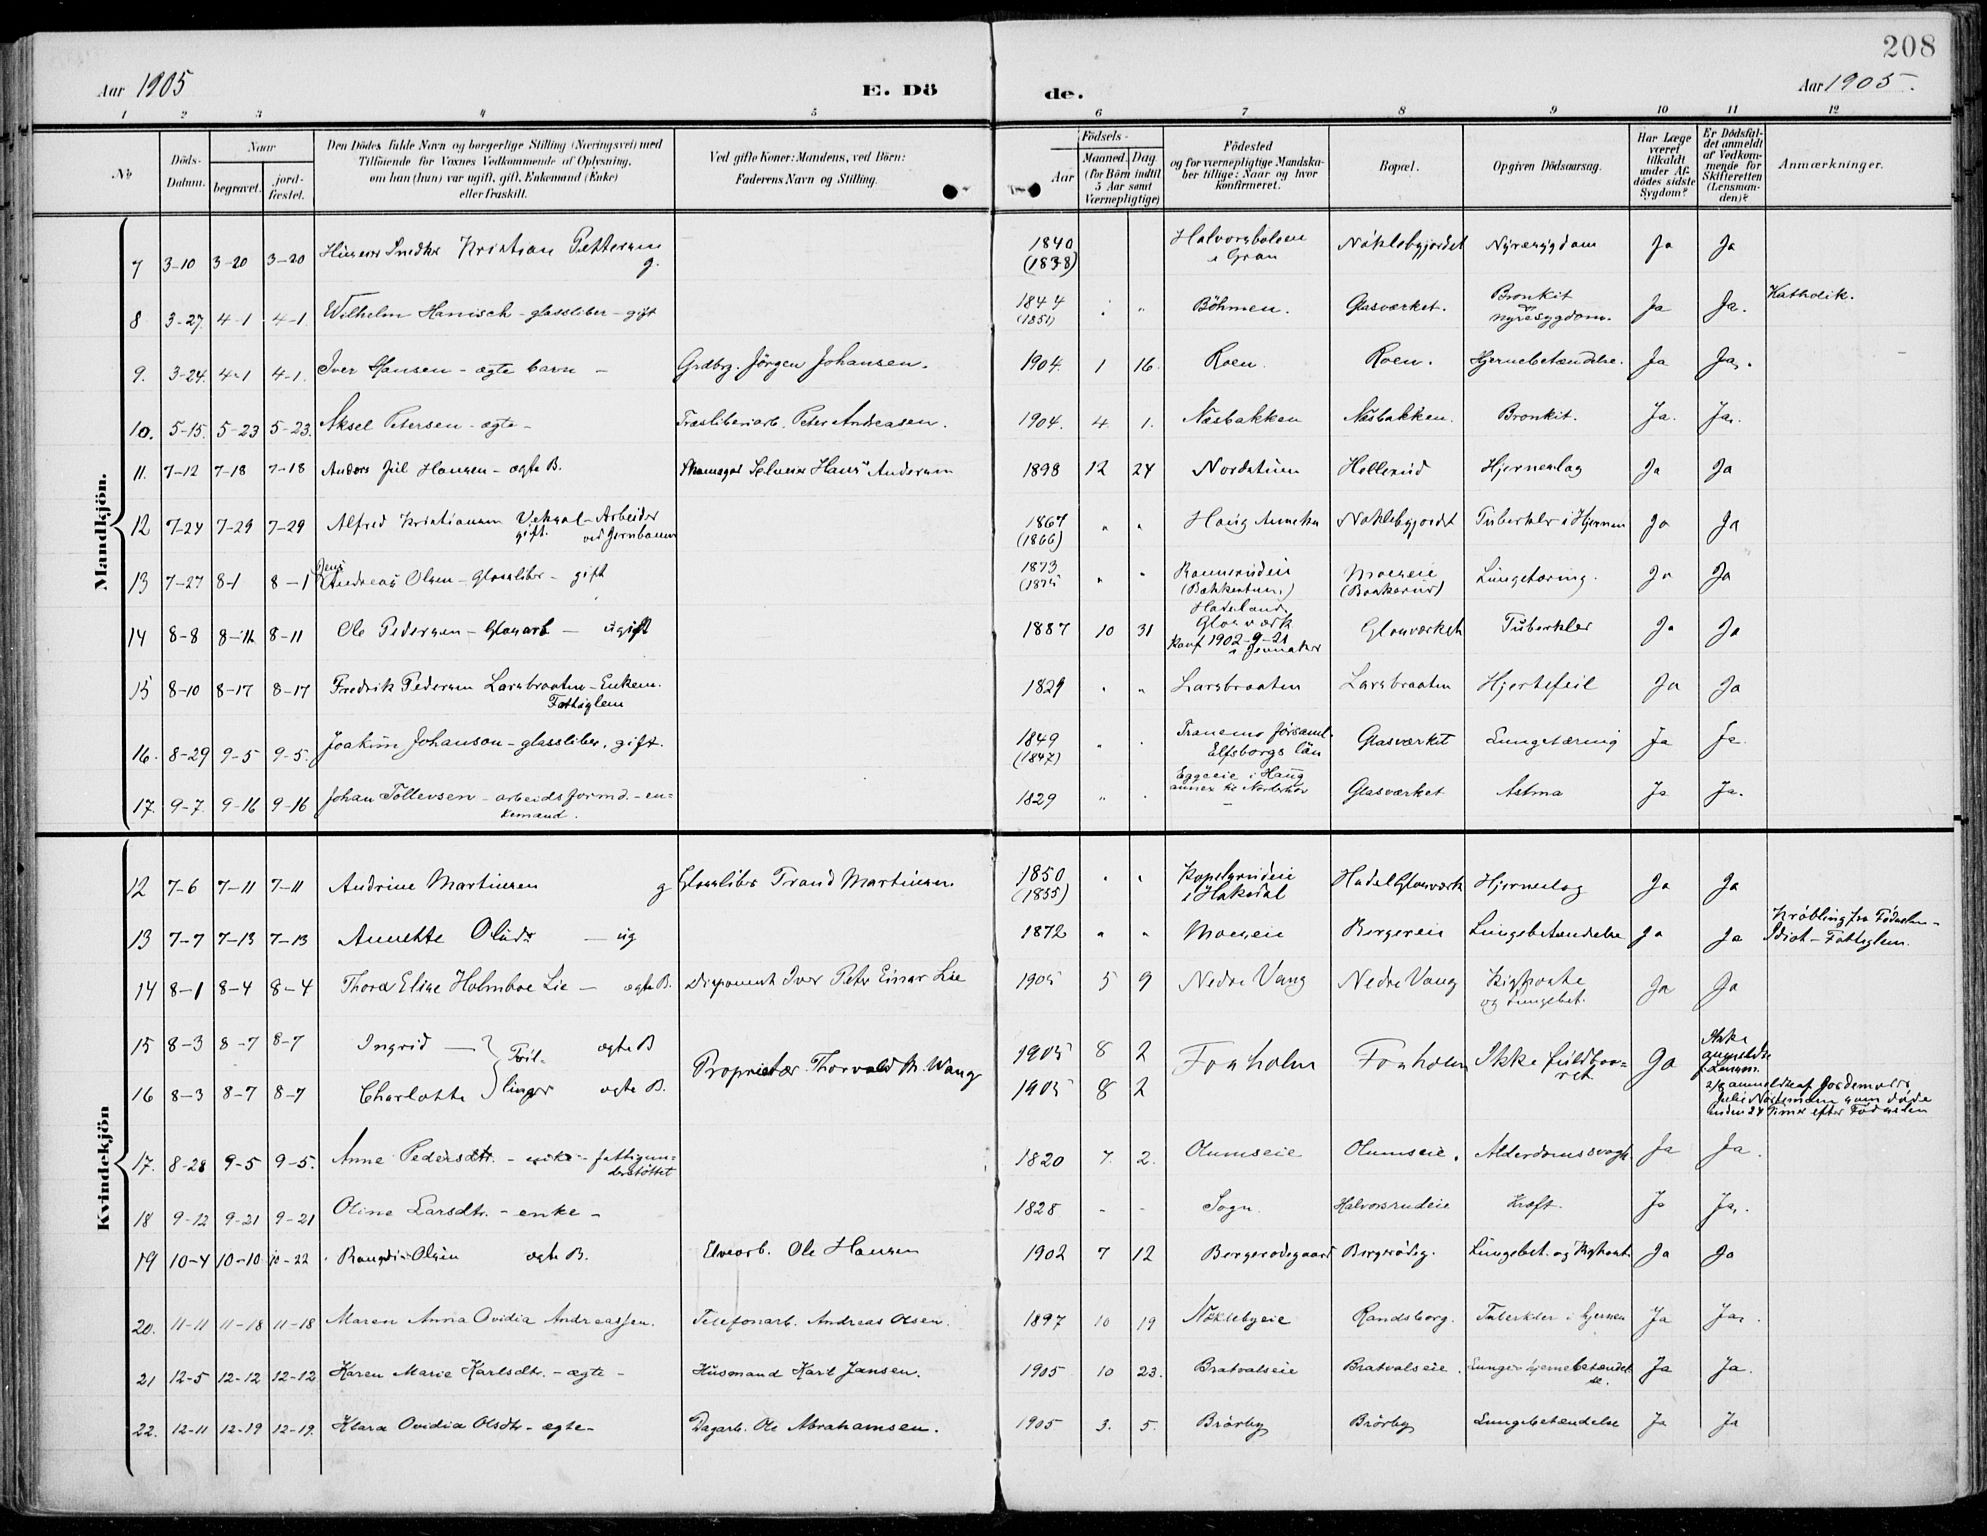 208
Aar 1905 E. Dö de. Aar 1905.
1 2 3 4 5 6 7 8 9 10 11 12
No
Döds-Datum.
Naar
begravet.
jord-fæstet.
Den Dödes fulde Navn og borgerlige Stilling (Næringsvei) med
Tilföiende for Voxnes Vedkommende af Oplysning,
om han (hun) var ugift, gift, Enkemand (Enke)
eller fraskilt.
Ved gifte Koner: Mandens, ved Börn:
Faderens Navn og Stilling.
Födsels-
Aar
Maaned. Dag.
(for Börn indtil
5 Aar samt
Værnepligtige)
Födested
og for værnepligtige Mandska-
ber tillige: Naar og hvor
konfirmeret.
Bopæl.
Opgiven Dödsaarsag.
Har Læge
været
tilkaldt
under Af-
dödes sidste
Sygdom?
Er Dödsfal-
det anmeldt
af Vedkom-
mende for
Skifteretten
(Lensman-
den)?
Anmærkninger.
Mandkjön.
7 3-10 3-20 3-20 Snedker Kristian Pettersen g. 1840 (1838) Halvorsbolen i Gran Nøklebyjordet Nyresygdom Ja Ja
8 3-27. 4-1 4-1. Wilhelm Hanisch - glassliber - gift 1844 (1851) " " Böhmen. Glasværket. Bronkit & nyresygdom. Ja Ja. Katholik.
9. 3-24. 4-1 4-1. Iver Hansen - ægte barn - Grdbr. Jörgen Johansen. 1904. 1 16. Roen. Roen. Hjernebetændelse. Ja Ja.
10. 5-15. 5-23 5-23. Aksel Petersen - ægte - Træsliberiarb. Peter Andreasen. 1904. 4. 1. Næsbakken Næsbakken. Bronkit. Ja. Ja.
11. 7-12 7-18 7-18 Anders Juel Hansen - ægte B. Hans Andersen 1898 12 24 Nordstuen Hellerud Hjerneslag Ja Ja
12 7-24 7-29 7-29 Alfred Kristiansen - Arbeider ved Jernbanen gift. 1867 (1866) " " Haug Nøklebyjordet Tuberkler i Hjernen Ja Ja
13 7-27 8-1 8-1 Jens Andreas Olsen - Glassliber - gift 1873 (1875 " " (Bækkestuen.) Moeseie Lungetæring. Ja Ja
14 8-8 8-12 8-11 Ole Pedersen - Glasarb - ugift 1887 10 31 Hadelands Glasværk Konf 1902-9-21 i Jevnaker Glasværket Tuberkler Ja Ja
15 8-10 8-17 8-17 Fredrik Pedersen Larsbraaten - Enkem. Fattiglem 1829 " " Larsbraaten Larsbraaten Hjertefeil Ja Ja
16. 8-29 9-5 9-5. Joakim Johanson - glassliber, gift. 1849 (1847) " " Tranems församl. Elfsborgs län Glasværket Lungetæring Ja Ja.
17. 9-7. 9-16 9-16 Johan Tollevsen - arbeidsformd. - en= kemand. 1829 " " Eggeeie i Haug annex til Norderhov Glasværket Astma Ja Ja.
Kvindekjön
12 7-6 7-11 7-11 Andrine Martinsen g Glassliber Trand Martinsen 1850 (1855) " " i Hakedal Hadel Glasværk Hjerneslag Ja Ja
13 7-7 7-13 7-13 Annette Olsdr - ug 1872 " " Moeseie Bergereie Lungebetændelse Ja Ja Krøbling fra Fødselen - Idiot - Fattiglem.
14 8-1 8-4 8-4 Thora Elise Holmboe Lie - ægte B. Disponent Iver Peter Einar Lie 1905 5 9 Nedre Vang Nedre Vang Kighoste og Lungebet. Ja Ja
15 8-3 8-7 8-7 Ingrid - Tvil- ægte B Proprietær Thorvald M. Wang 1905 8 2 Fonholm Fonholm Ikke fuldbaa- ret Ja Ikke anmeldte Lensm.
16 8-3 8-7 8-7 Charlotte linger ægte B. 1905 8 2 2/8 anmeldte af Jordemoder Julie som døde inden 24 Timer efter Fødselen
17. 8-28 9-5 9-5. Anne Pedersdtr. - enke - fattigun= derstöttet 1820 7. 2. Olumseie Olumseie. Alderdomssvagh. Ja Ja.
18 9-12 9-21 9-21 Oline Larsdtr. - enke - 1828 - - Sogn. Halvorsrudeie Kræft. Ja Ja.
19 10-4 10-10 10-22 Olsen ægte B. Elvearb. Ole Hansen 1902 7 12 Bergerødegaard Bergerødeg. Lungebet. og Kighoste Ja Ja
20. 11-11 11-18 11-18 Maren Anna Ovidia Andreassen. Telefonarb. Andreas Olsen. 1897 10 19 Nøklebyeie Randsborg. Tuberkler i hjernen Ja Ja.
21 12-5 12-12 12-12 Karen Marie Karlsdtr. - ægte - Husmand Karl Jansen. 1905 10 23. Bratvalseie Bratvalseie. Lunge & hjernebetændel= se. Ja Ja.
22. 12-11 12-19 12-19. Klara Ovidia Olsdtr - ægte - Dagarb. Ole Abrahamsen. 1905 3. 5. Brörby Brörby Lungebetændelse Ja Ja